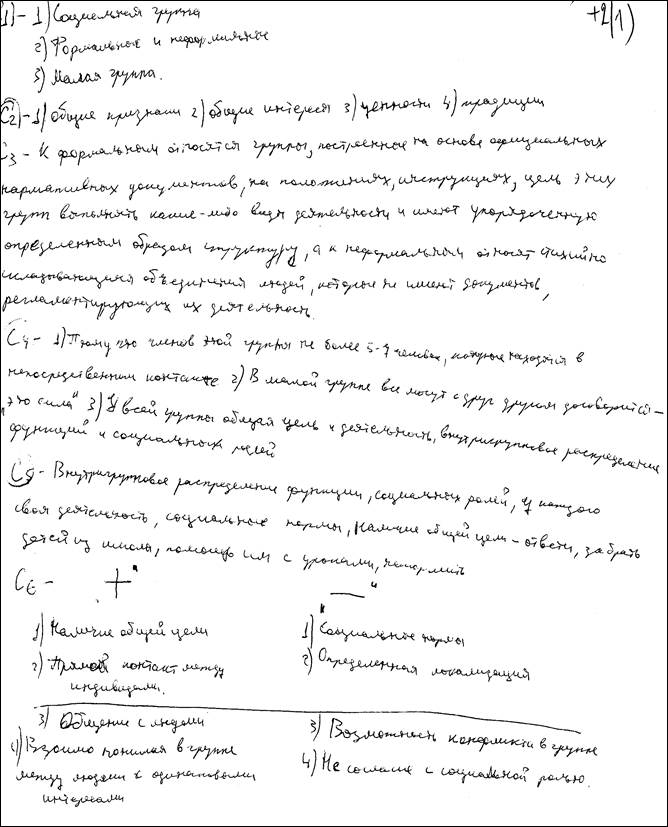 1) - 1) Социальная группа +2(1)
2) Формальные и неформальные
3) Малая группа.
C2) - 1) общие признаки 2) общие интересы 3) ценности 4) традиции
C3 - К формальным относятся группы, построенные на основе официальных
нармативных документов, на положениях, инструкциях, цель этих
групп выполнять какие-либо виды деятельности и имеют упорядоченную
определенным образом структуру, а к неформальным относят стихийно
складывающиеся объединения людей, которые не имеют документов,
регламентирующих их деятельность.
C4 - 1) Потому что членов этой группы не более 5-7 человек, которые находятся в
непосредственном контакте 2) В малой группе все могут друг с другом договорится -
"это сила" 3) У всей группы общая цель и деятельность, внутригрупповое распределение
функций и социальных ролей
C5 - Внутригрупповое распределение функции, социальных ролей, у каждого
своя деятельность, социальные нормы, наличие общей цели - отвести, забрать
детей из школы, помощь им с уроками, накормить
C6 - "+" "—"
1) Наличие общей цели 1) Социальные нормы
2) Прямой контакт между 2) Определенная локализация
индивидами.
3) Общение с людьми 3) Возможность конфликта в группе
4) Взаимо понимая в группе 4) Не согласие с социальной ролью.
между людьми с одинаковыми
интересами